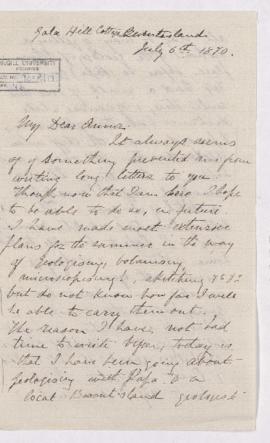 Gala Hill Cottage Burntisland.
July 6th. 1870.
McGILL UNIVERSITY
ARCHIVES
My Dear Anna.
It always seems
as if something prevented me from
writing long letters to you
though now that I am here I hope
to be able to do so, in future.
I have made most extensive
plans for the summer in the way
of Geologising, botanising
microscopising!, sketching &c &c
but do not know how far I will
be able to carry them out.
The reason I have not had
time to write before today is
that I have been going about
Geologising with Papa & a
local Burntisland geologist